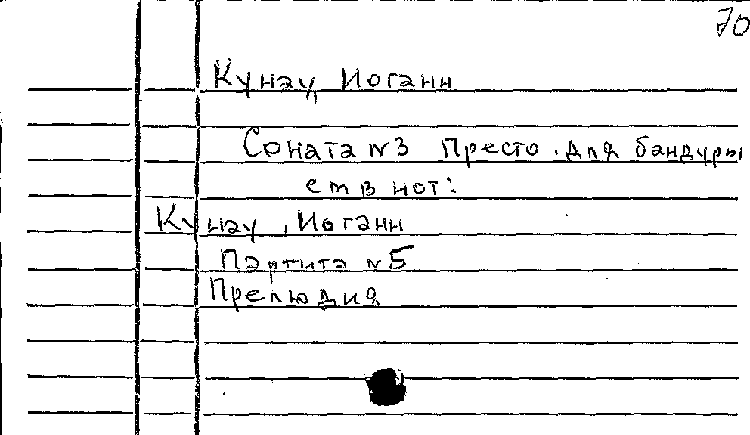 70
Кунау, Иоганн
Соната №3 Престо. для бандуры
см в нот:
Кунау, Иоганн
Партита №5
Прелюдия